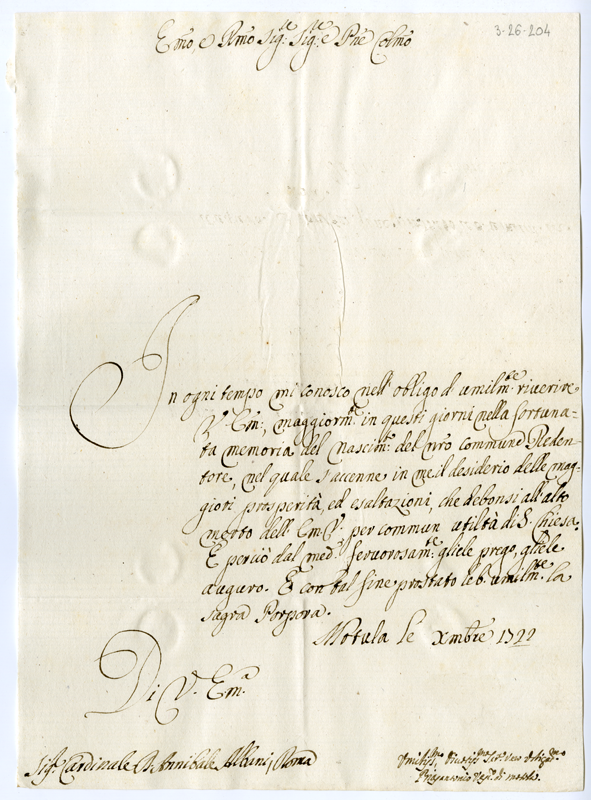 3-26-204
Emo, e Rmo Sig.re Sig.re e Pne Colmo
In ogni tempo mi conosco nell' obligo di umilm.te riverire
V. Em.a, maggiorm.te in questi giorni nella fortuna=
ta memoria del nascim.to del nr̃o commune Reden-
tore, nel quale s'accenne in me il desiderio delle mag-
giori prosperità, ed esaltazioni, che debonsi all'alto
merto dell' Em.V. per commun utiltà di S. Chiesa.
E perciò dal med.o fervorosam.te gliele prego, gliele
auguro. E con tal fine prostato le b. umilm.te la
sagra Porpora.
Motula le Xmbre 1722
Di V. Em.a
Sig.r Cardinale D. Annibale Albani, Roma
Umiliss.mo, Divotiss.mo Ser.re vero Obligat.mo